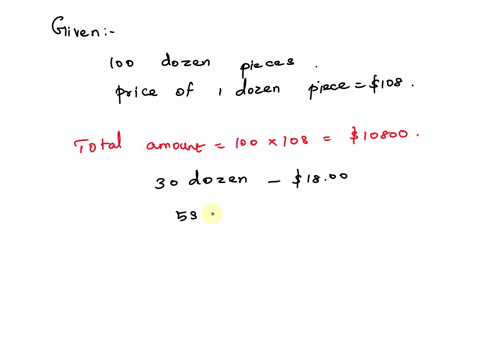 Given:-
100 dozen pieces.
price of 1 dozen piece = $108.
Total amount = 100 × 108 = $10800.
30 dozen - $18.00
59